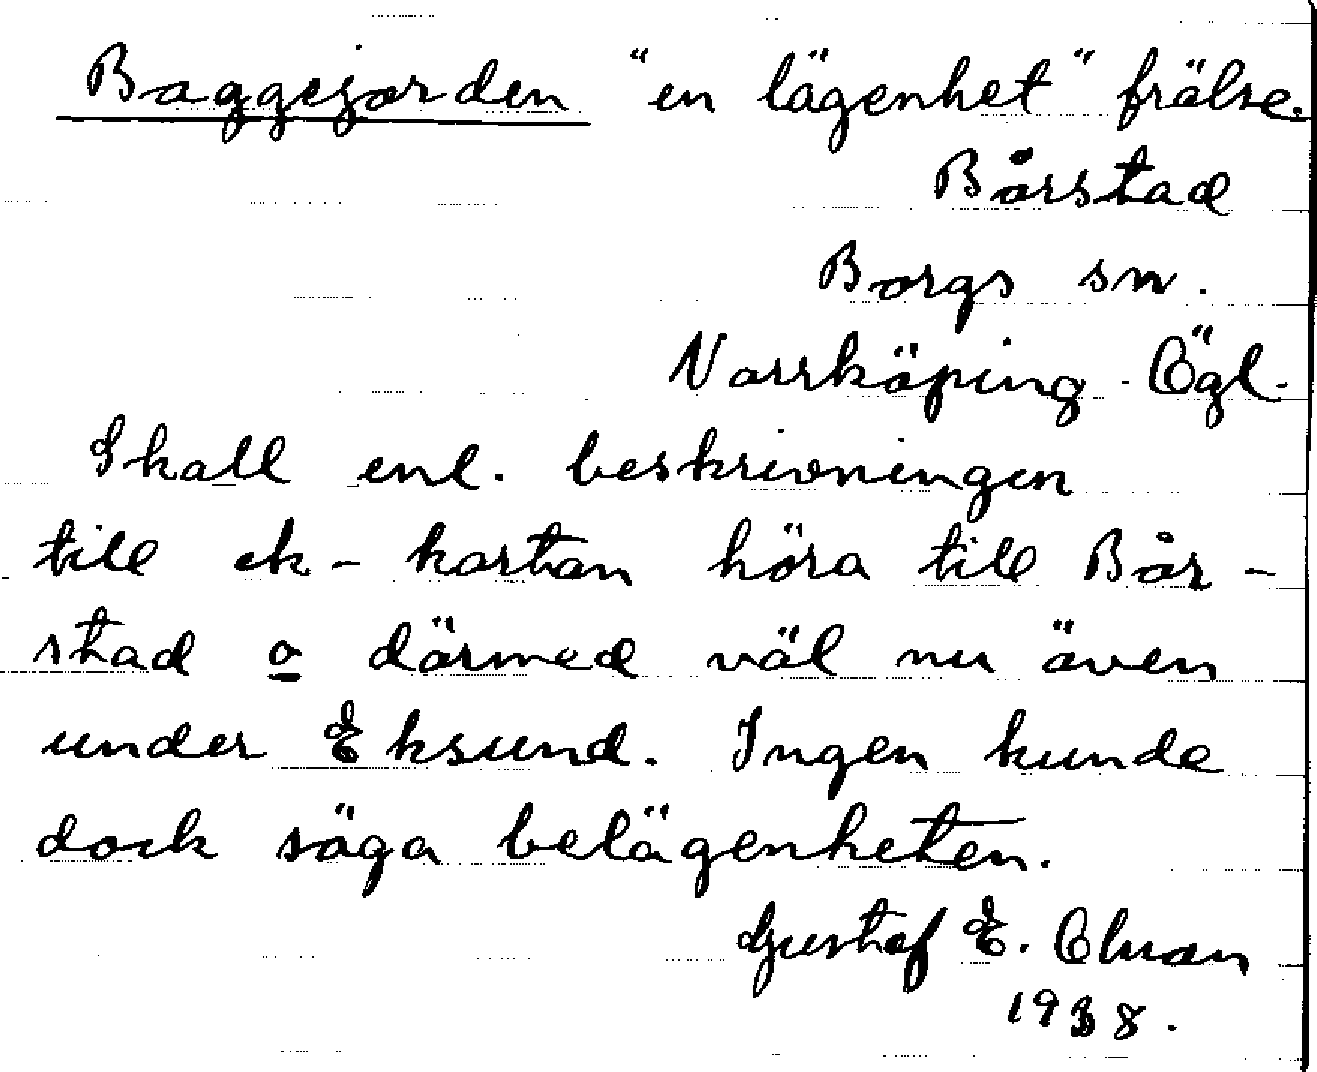 Baggejorden "en lägenhet" frälse.
Bårstad
Borgs sn.
Norrköping. Ögl.
Skall enl. beskrivningen
till ek-kartan höra till Bår-
stad o därmed väl nu även
under Eksund. Ingen kunde
dock säga belägenheten.
Gustaf E.
1938.